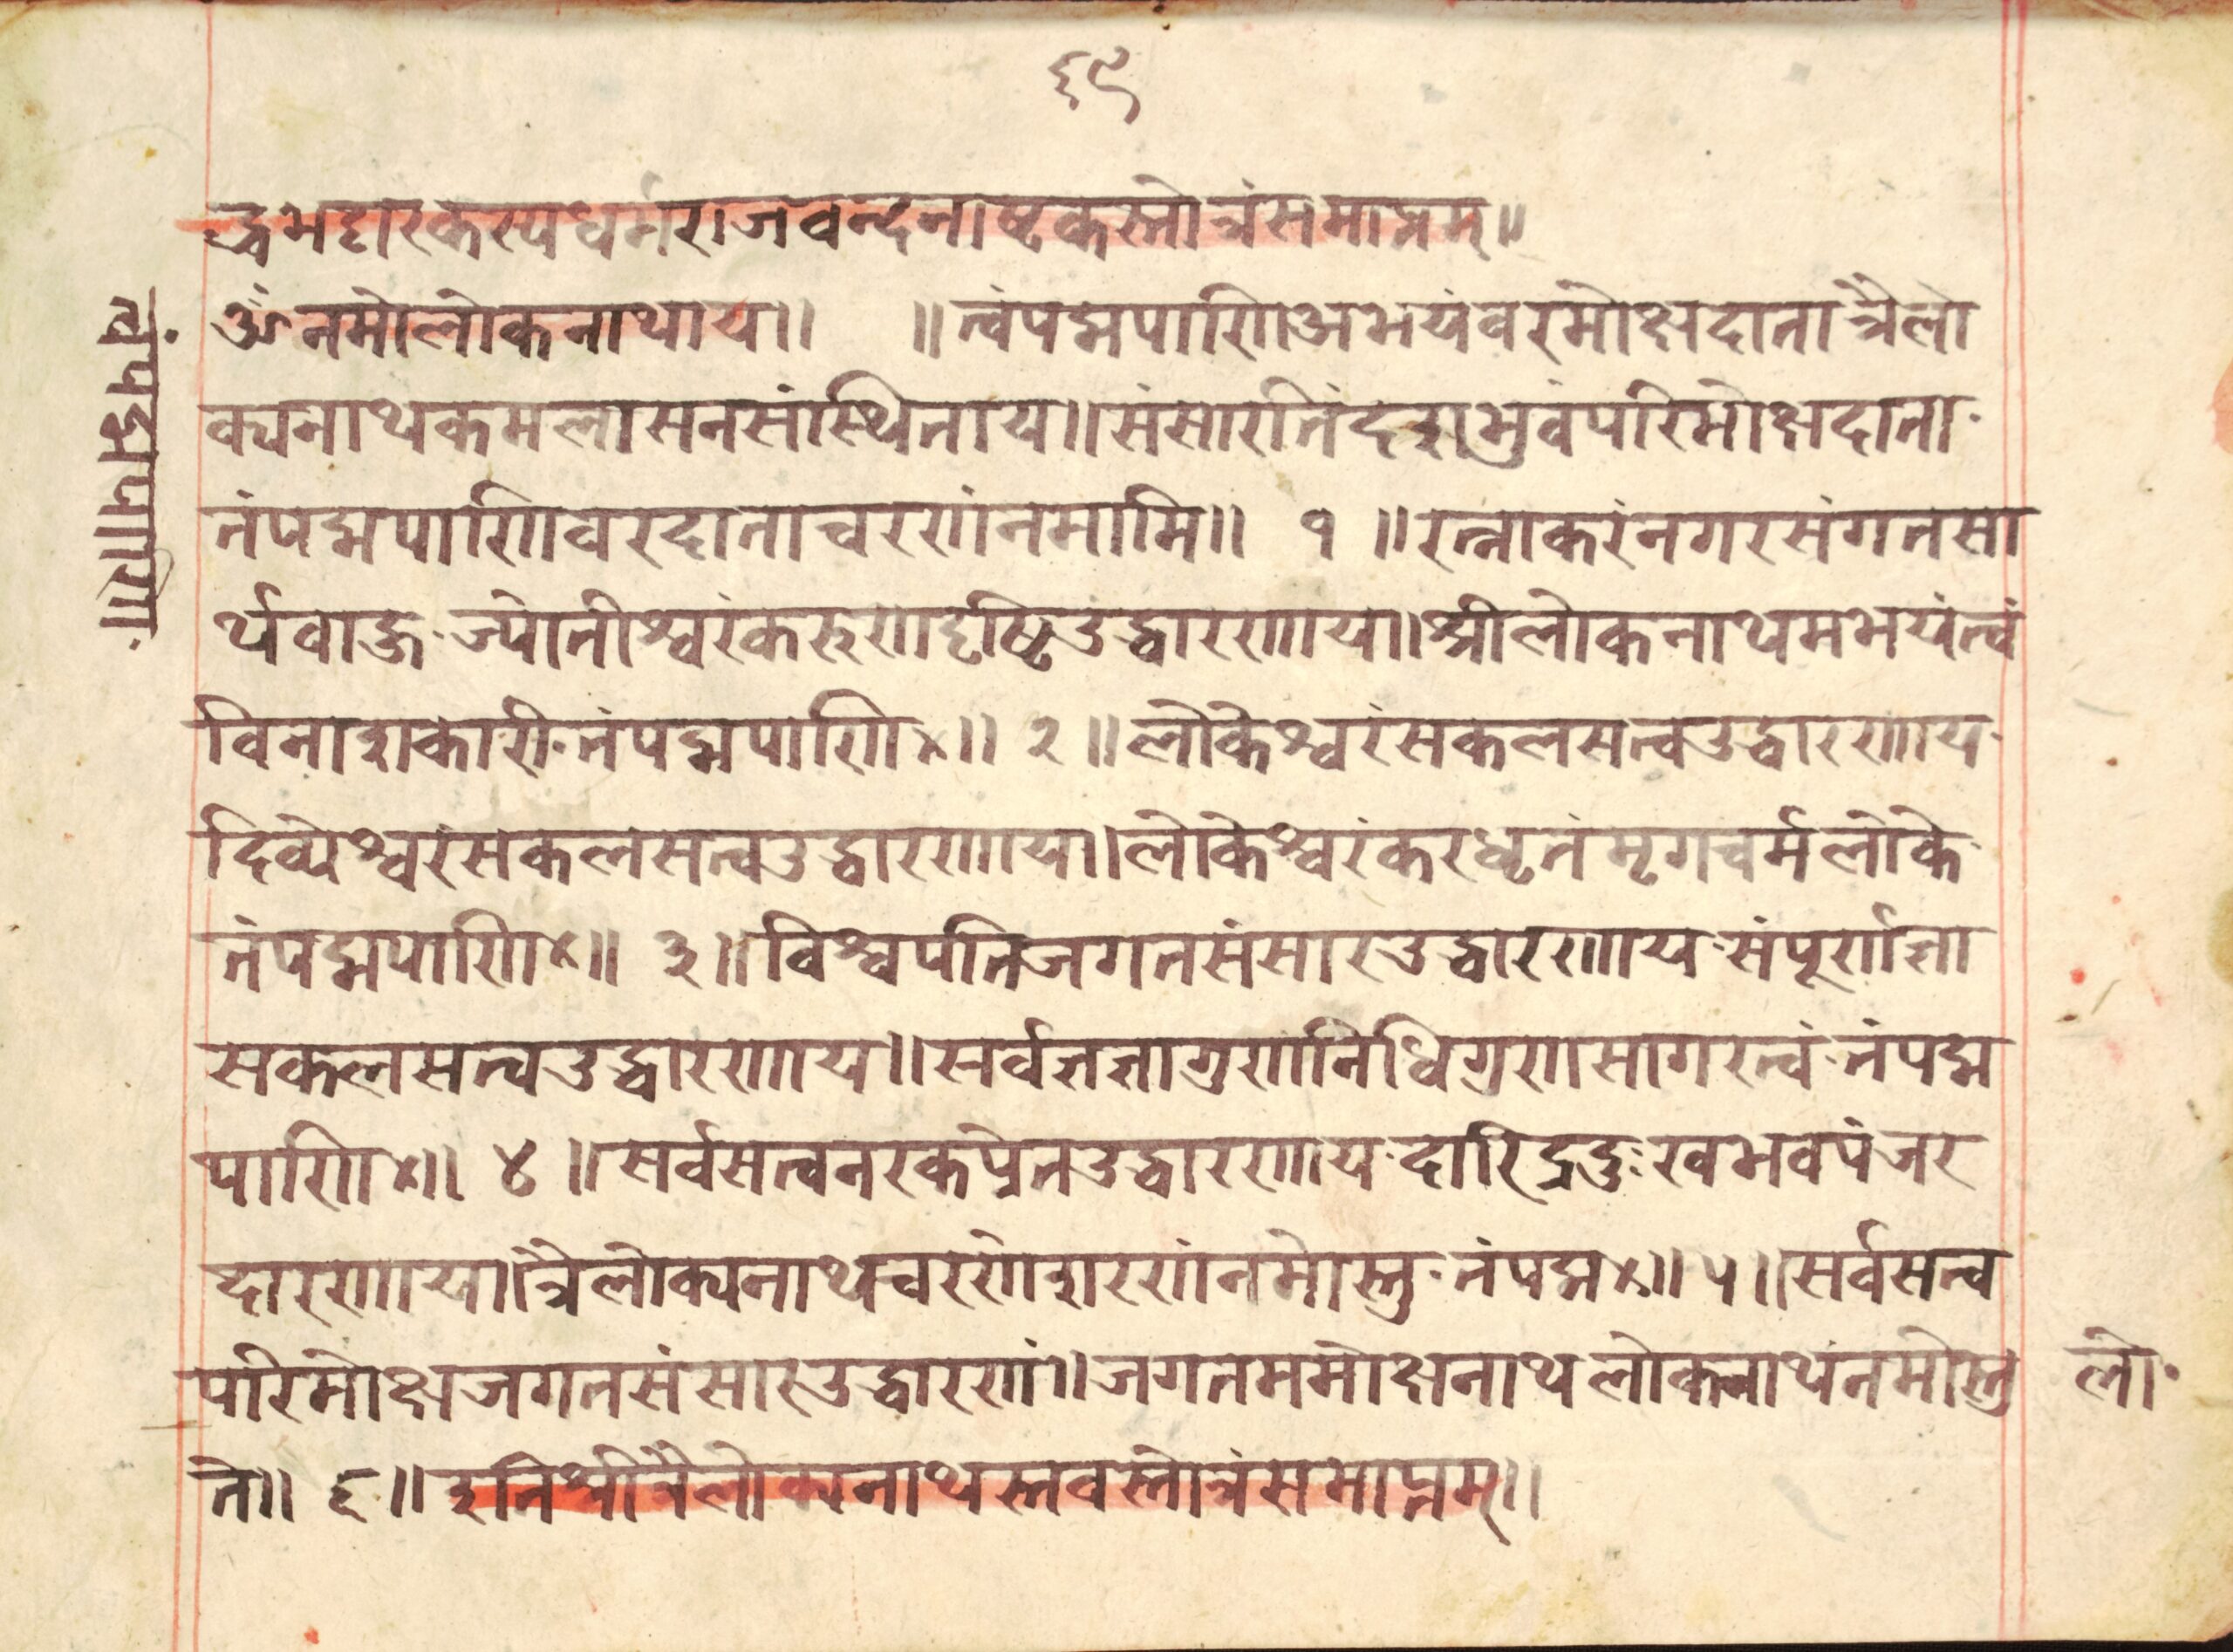 ६९
द्धभट्टारकस्यधर्मराजवन्दनाष्टकस्तोत्रंसमाप्तम्॥
ॐनमोलोकनाथाय॥ ॥त्वंपद्मपाणिअभयंवरमोक्षदातात्रैलो
क्यनाथकमलासनसंस्थिताय॥संसारतिंदशभुवंपरिमोक्षदाता
तंपद्मपाणिवरदाताचरणंनमामि॥ १ ॥रत्नाकरंनगरसंगतसा
र्थवाह ज्योतीश्वरंकरुणादृष्टिउद्धारणाय॥श्रीलोकनाथमभयंत्वं
विनाशकारी तंपद्मपाणि४॥ २ ॥लोकेश्वरंसकलसत्वउद्धारणाय
दिव्येश्वरंसकलसत्वउद्धारणाय॥लोकेश्वरंकरधृतंमृगचर्मलोके
तंपद्मपाणि४॥ ३॥विश्वपतिजगतसंसारउद्धारणाय संपूर्णज्ञा
सकलसत्वउद्धारणाय॥सर्वज्ञज्ञागुणनिधिगुणसागरत्वं तंपद्म
पाणि४॥ ४ ॥सर्वसत्वनरकप्रेतउद्धारणाय दारिद्रदुःखभवपंजर
दारणाय॥त्रैलोक्यनाथचरणेशरणंनमोस्तु तंपद्म४॥ ५॥सर्वसत्व
परिमोक्षजगतसंसारउद्धारणं॥जगतममोक्षनाथलोकनाथंनमोस्तु लो
ते॥ ६ ॥इतिश्रीत्रैलोक्यनाथस्तवस्तोत्रंसमाप्तम्॥
त्वंपद्मपाणि